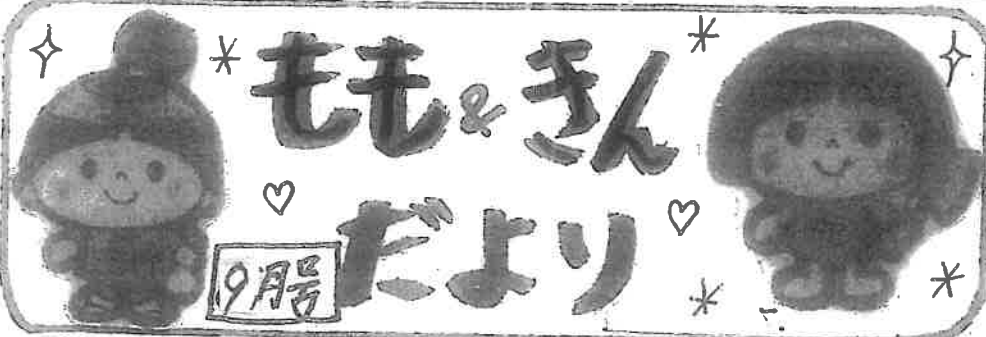 もも&きん
だより
9月号